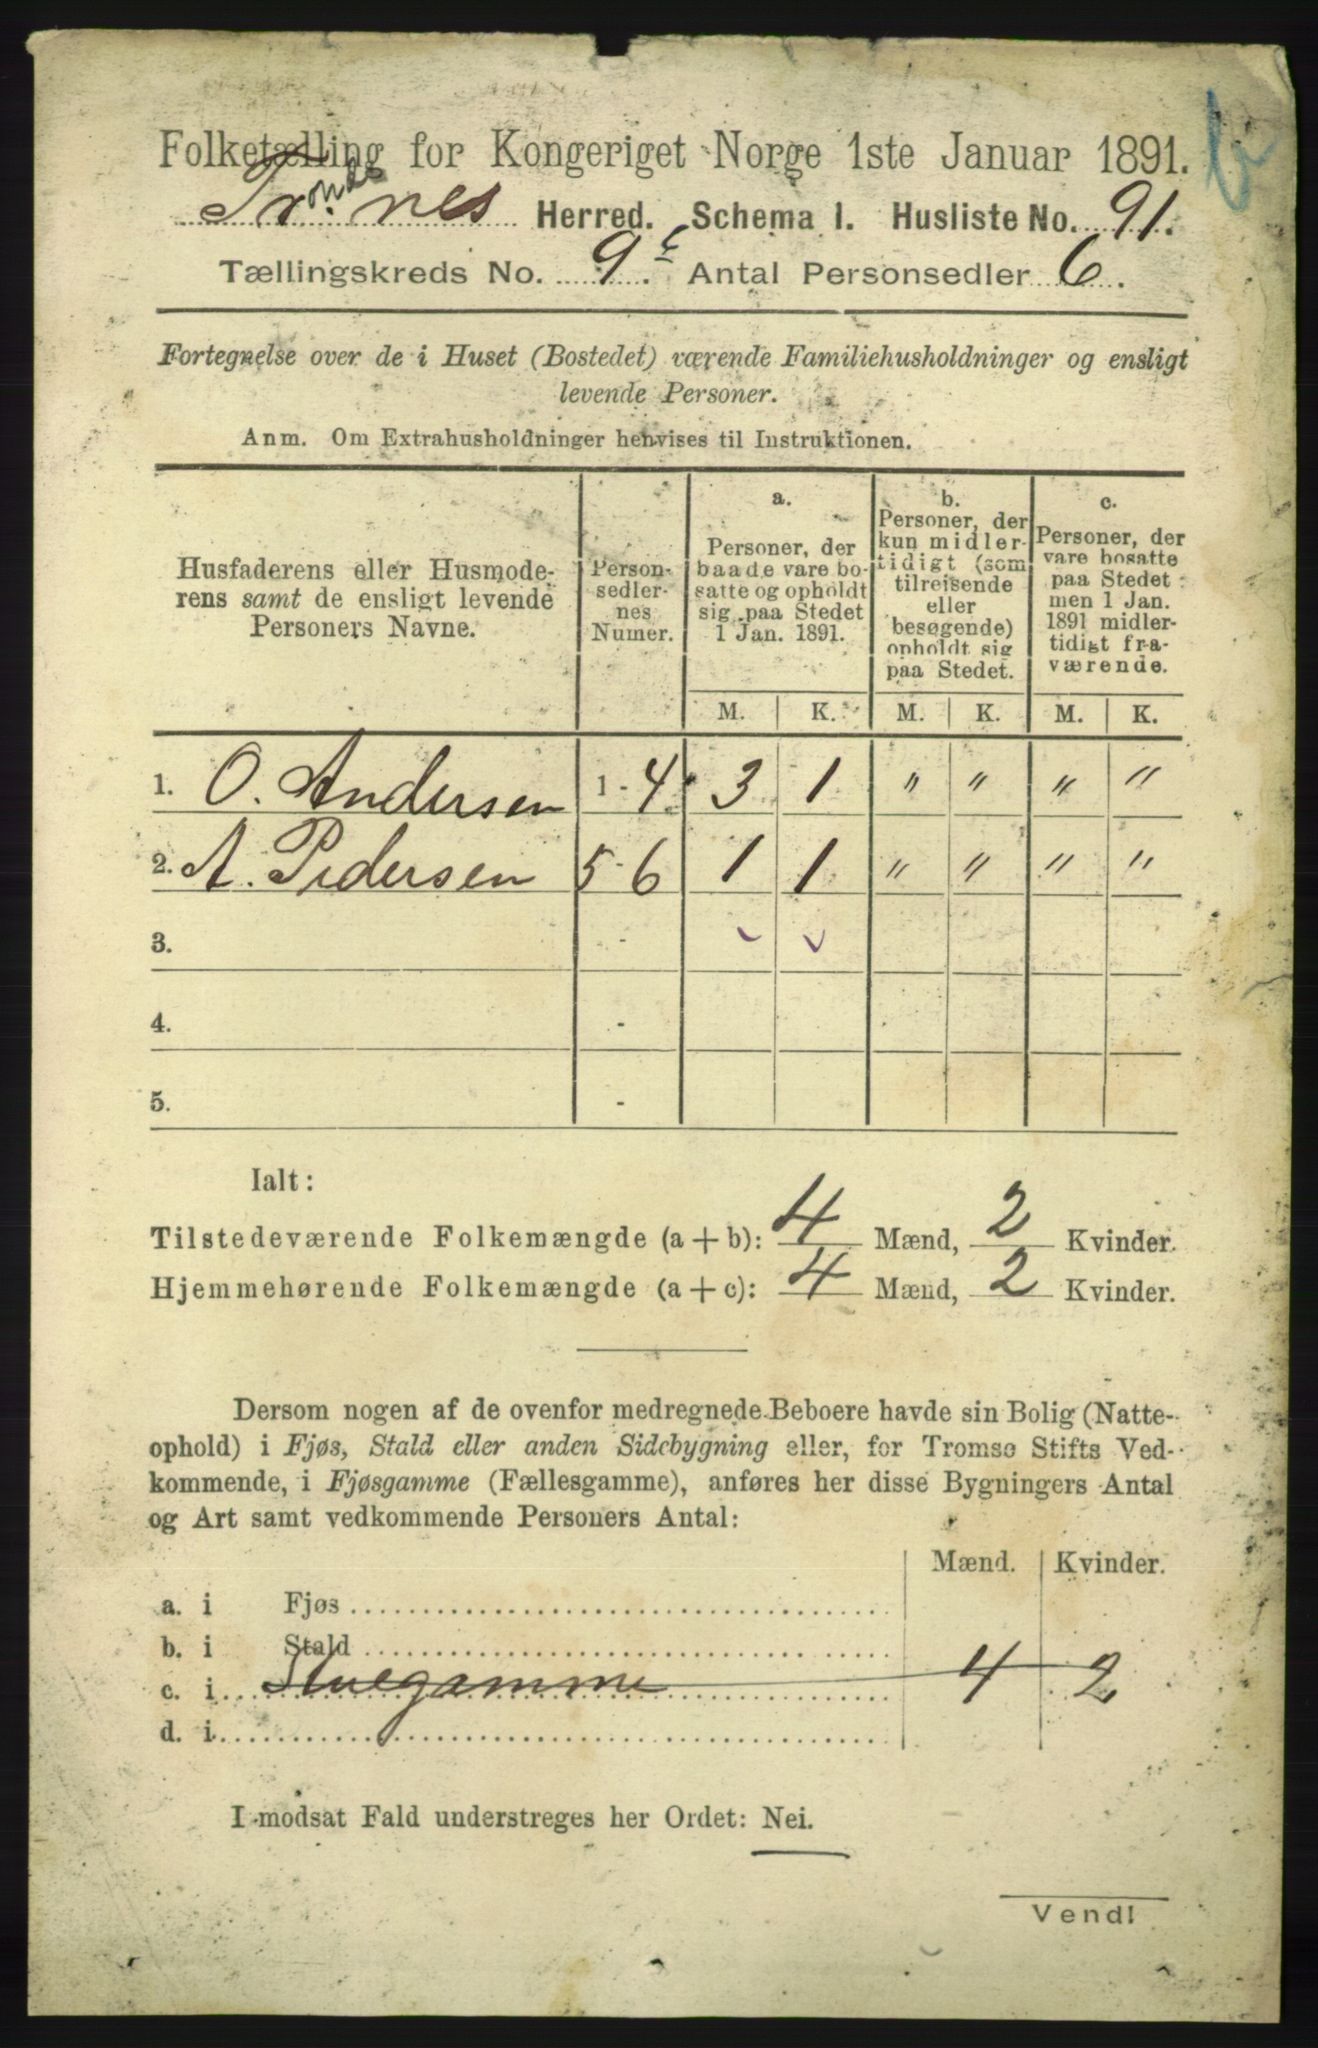 Folketælling for Kongeriget Norge 1ste Januar 1891.
Trondenes Herred. Schema I. Husliste No. 91.
Tællingskreds No. 9c. Antal Personsedler 6.
Fortegnelse over de i Huset (Bostedet) værende Familiehusholdninger og ensligt
levende Personer.
Anm. Om Extrahusholdninger henvises til Instruktionen.
Husfaderens eller Husmode-
rens samt de ensligt levende
Personers Navne.
Person-
sedler-
nes
Numer.
a.
Personer, der
baade vare bo-
satte og opholdt
sig paa Stedet
1 Jan. 1891.
b.
Personer, der
kun midler-
tidigt (som
tilreisende
eller
besøgende)
opholdt sig
paa Stedet.
c.
Personer, der
vare bosatte
paa Stedet
men 1 Jan.
1891 midler-
tidigt fra-
værende.
M. K. M. K. M. K.
1. O. Andersen 1 - 4 3 1 " " " "
2. A. Pedersen 5 - 6 1 1 " " " "
3. -
4. -
5. -
Ialt:
Tilstedeværende Folkemængde (a + b): 4 Mænd, 2 Kvinder.
Hjemmehørende Folkemængde (a + c): 4 Mænd, 2 Kvinder.
Dersom nogen af de ovenfor medregnede Beboere havde sin Bolig (Natte-
ophold) i Fjøs, Stald eller anden Sidebygning eller, for Tromsø Stifts Ved-
kommende, i Fjøsgamme (Fællesgamme), anføres her disse Bygningers Antal
og Art samt vedkommende Personers Antal:
Mænd. Kvinder.
a. i Fjøs
b. i Stald
c. i Stuegamme 4 2
d. i
I modsat Fald understreges her Ordet: Nei.
Vend!